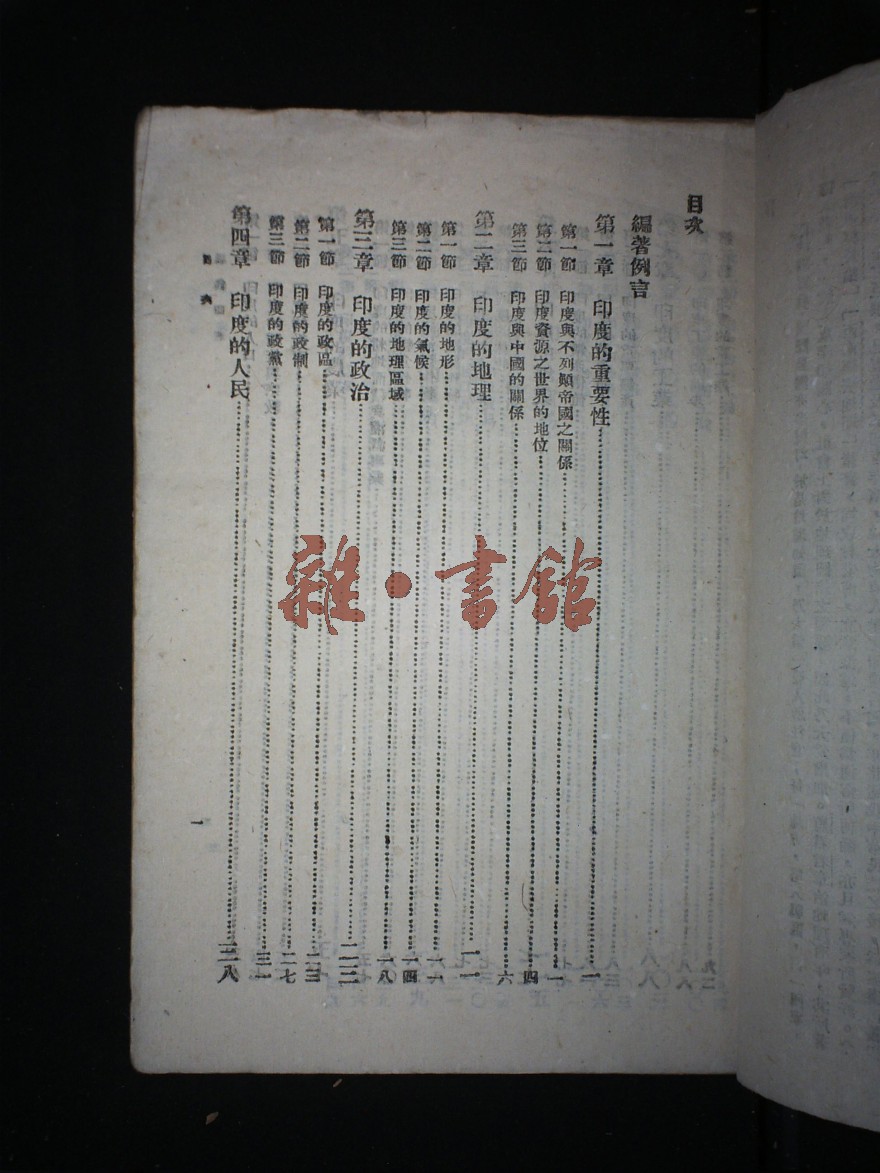 目次
編著例言
第一章 印度的重要性……一
第一節 印度與不列顛帝國之關係……一
第二節 印度資源之世界的地位……四
第三節 印度與中國的關係……六
第二章 印度的地理……一一
第一節 印度的地形……一一
第二節 印度的氣候……一四
第三節 印度的地理區域……一八
第三章 印度的政治……二三
第一節 印度的政區……二三
第二節 印度的政制……二七
第三節 印度的政黨……三一
第四章 印度的人民……三八
目次
一
雜·書館